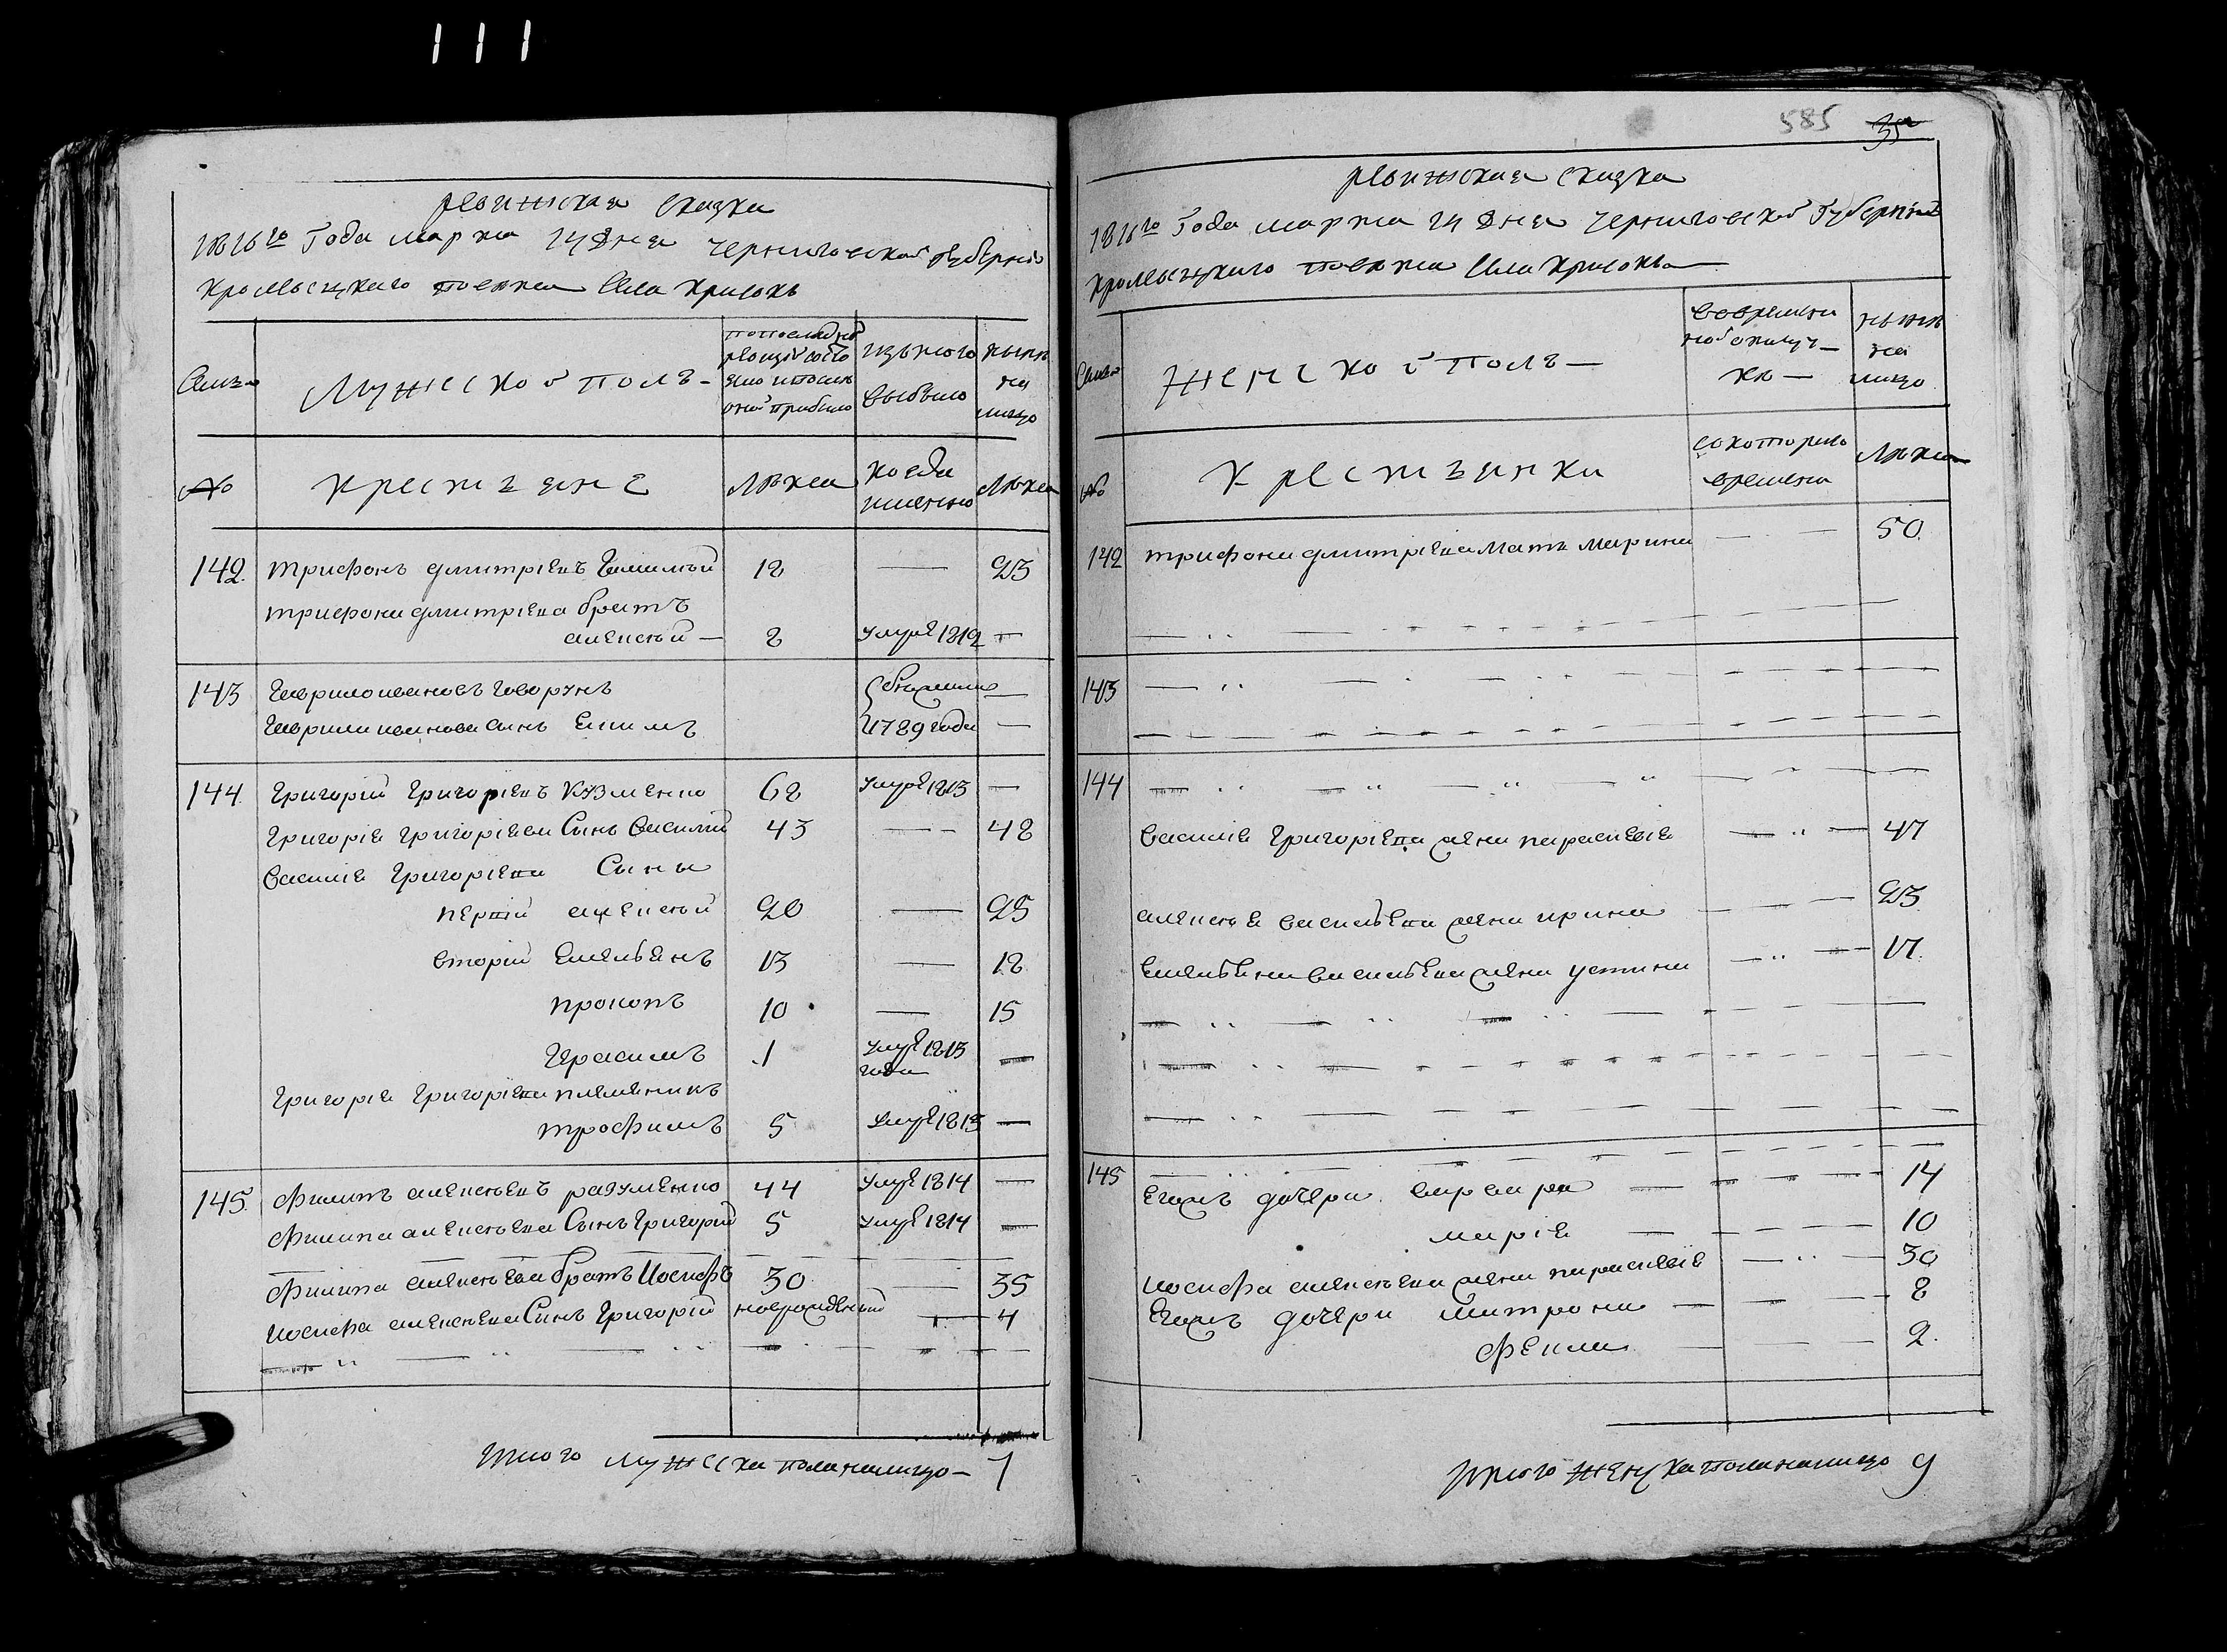 111
Ревижская сказка
1816го Года марта 24 Дня Черниговской Губернии
Кролевецкаго Повета Села
Семьи
Мужеской Полъ
По последней ревизіи состояло и после оной прибыло
Изъ того выбыло
Ныне на лицо
№
Крестьяне
Лета
Когда именно
Лета
142. Трифонъ Дмитріевъ 18 — 23
Трифона Дмитріева братъ
Алексей — 8 умре 1812 —
143 Гаврило Ивановъ Говорунъ —
Гаврила Иванова сынъ Екимъ 1789 года —
144. Григорій Григоріевъ Кузменко 68 умре 1813 —
Григорія Григоріева Сынъ Василій 43 — 48
Василія Григоріева Сыны
первій Алексей 20 — 25
вторій Емельянъ 13 — 18
Прокопъ 10 — 15
Герасимъ 1 умре 1813 года —
Григорія Григоріева племеникъ
Трофимъ 5 умре 1813 —
145. Филипъ Алексеевъ Разуменко 44 умре 1814 —
Филипа Алексеева Сынъ Григорій 5 умре 1814 —
Филипа Алексеева братъ Иосифъ 30 — 35
Иосифа Алексеева Сынъ Григорій новорожденый — 4
Итого Мужеска пола налицо — 7
585
35
Ревижская сказка
1816го Года марта 24 Дня Черниговской Губерніи
Кролевецкаго Повета Села
Семьи
Женской Полъ —
Во временной отлучке —
Ныне на лицо
№
Крестьянки
Съ котораго времени
Лета
142 Трифона Дмитріева Мать Марина — 50.
143
144
Василія Григоріева жена Параскевія — 47
Алексея Васильева жена Ирина — 23
Емельяна Васильева жена Устина — 17.
145
Егожъ дочери Варвара — 14
Марія — 10
Иосифа Алексеева жена Параскевія — 30
Егожъ дочери Митрона — 8
Фекла — 2.
Итого Женска пола налицо 9